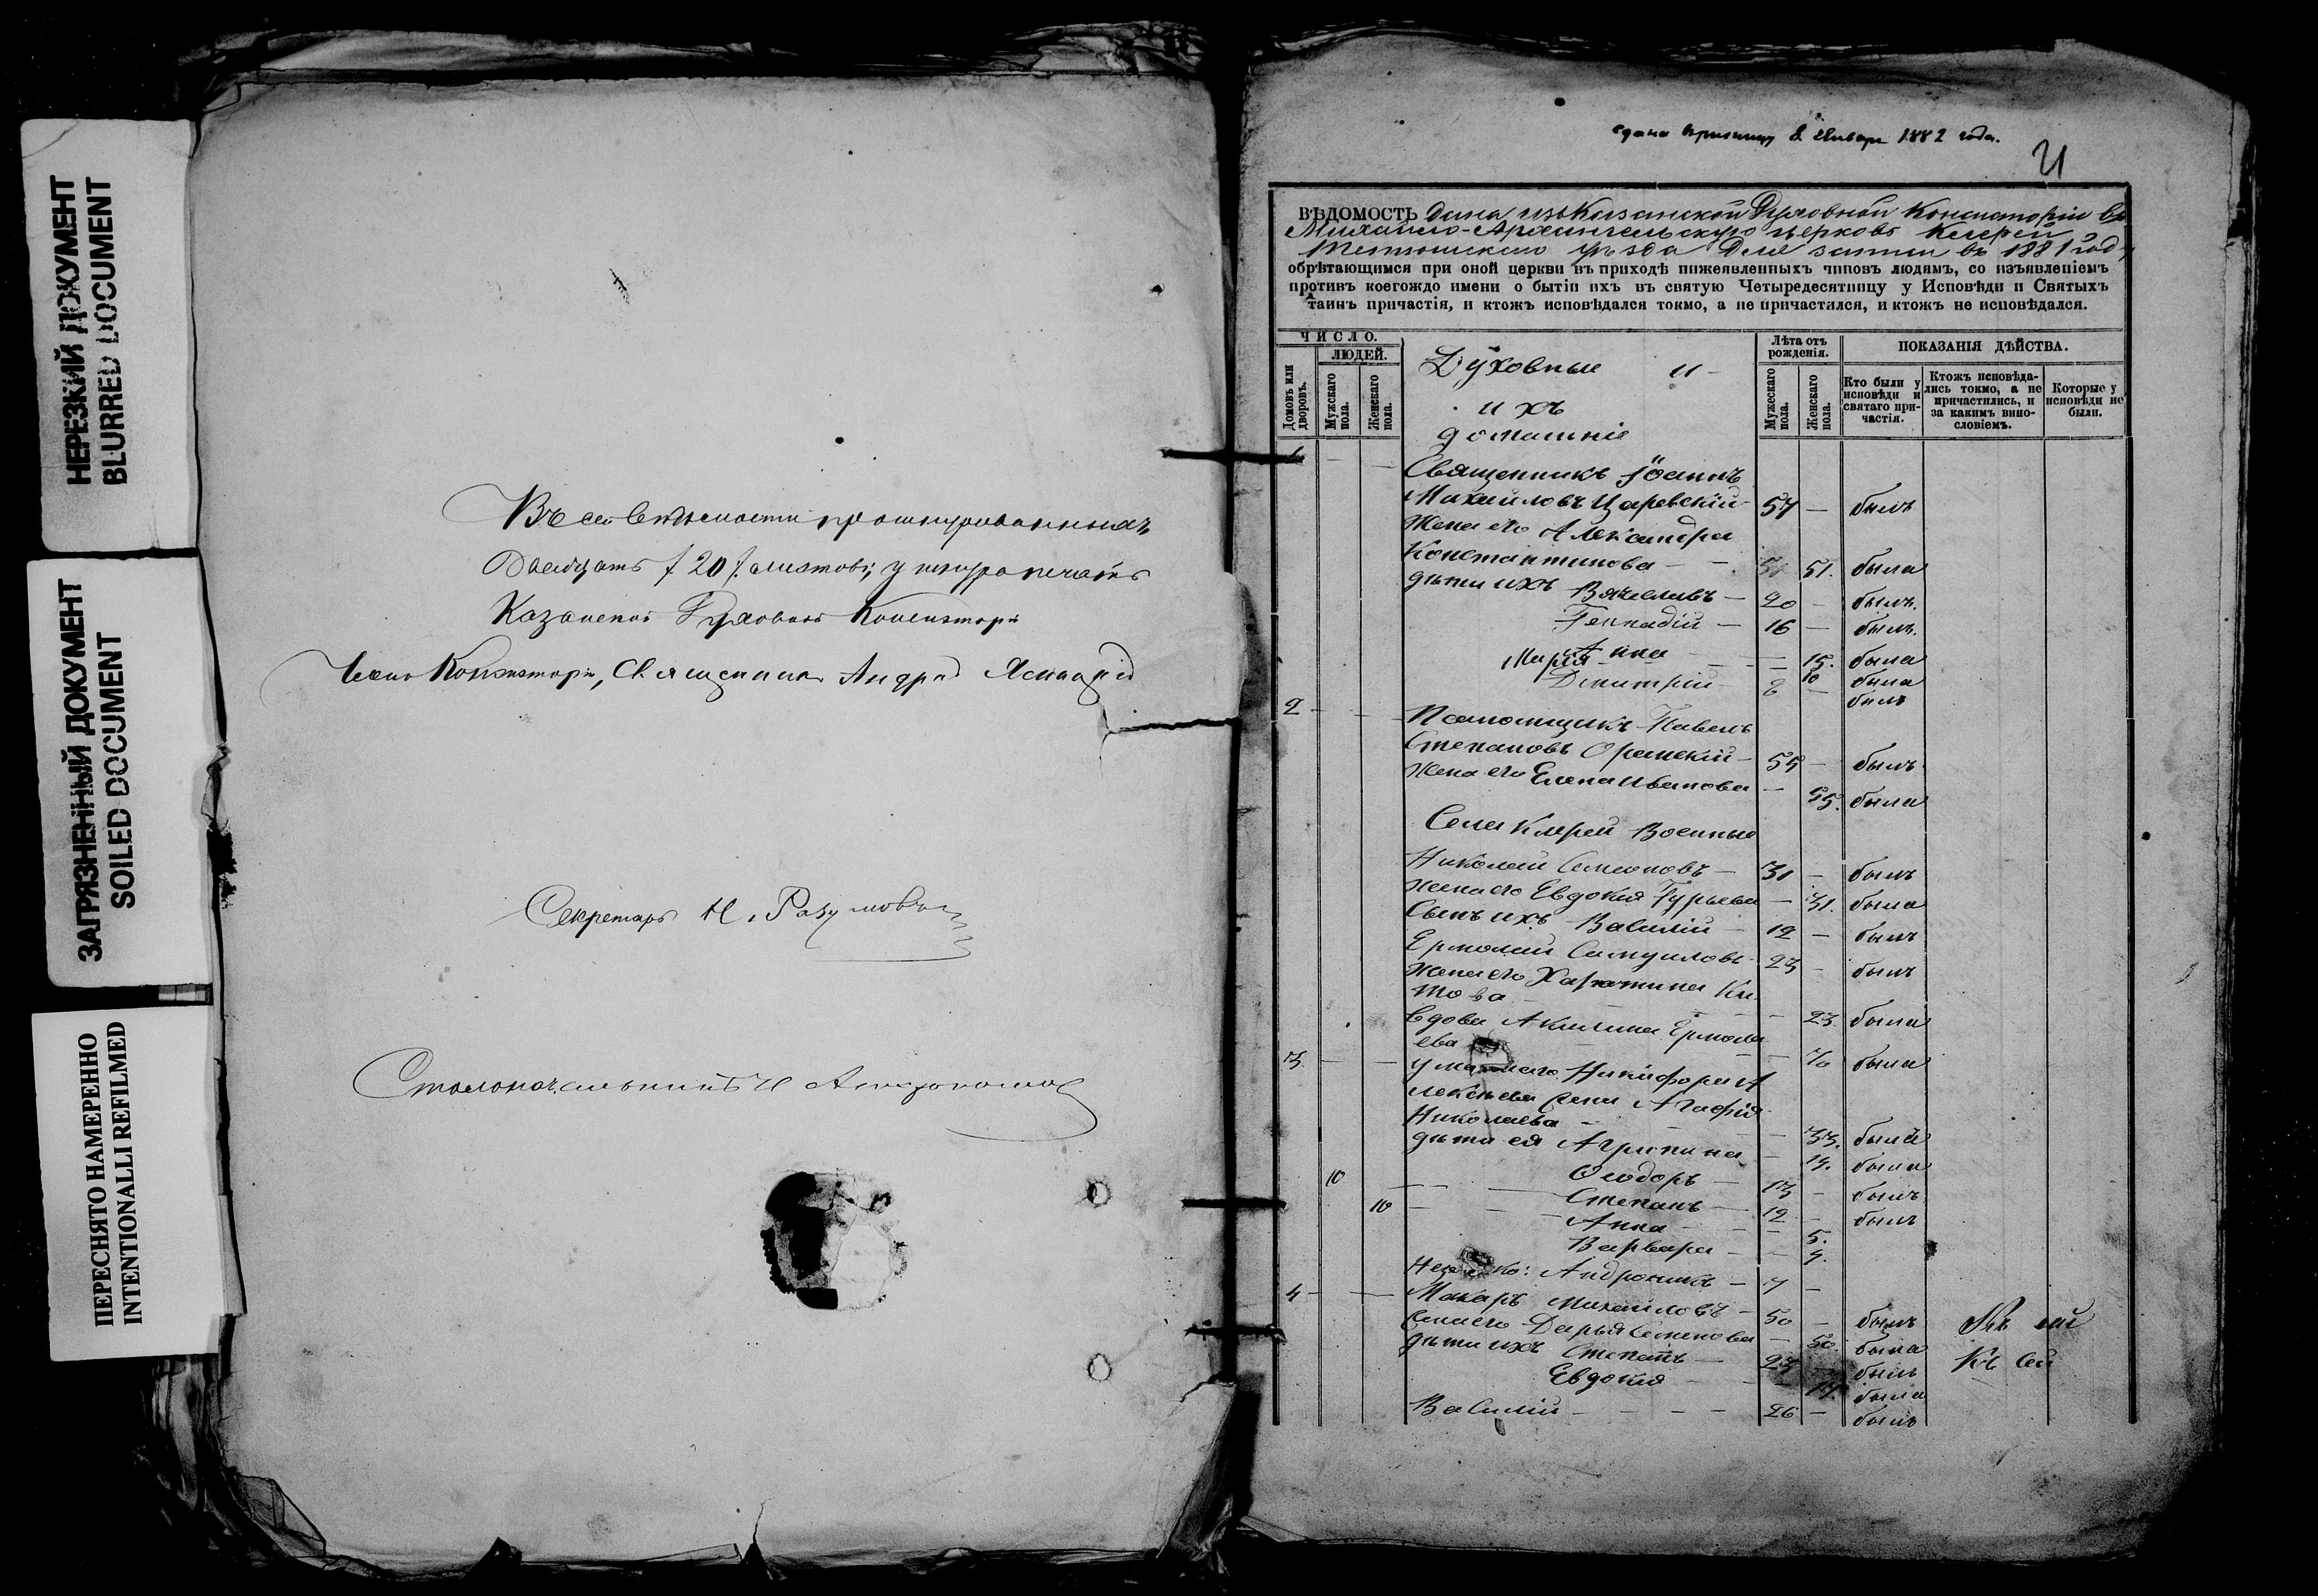 НЕРЕЗКИЙ ДОКУМЕНТ
BLURRED DOCUMENT
ЗАГРЯЗНЕННЫЙ ДОКУМЕНТ
SOILED DOCUMENT
ПЕРЕСНЯТО НАМЕРЕННО
INTENTIONALLI REFILMED
Въ сей вѣдомости прошнурованныхъ
Двадцать /20/. листовъ, у шнура печать
Казанской Духовной Консисторіи
Членъ Консисторіи, Священникъ Андрей
Секретарь Н. Разумовъ
Столоначальникъ
1882 года.
ВѢДОМОСТЬ Дана изъ Казанской Духовной Консисторіи въ
Михаило-Архангельскую церковь
Тетюшскаго уѣзда Для записи въ 1881 год
обрѣтающимся при оной церкви въ приходѣ нижеявленныхъ чиновъ людямъ, со изъявленіемъ
противъ коегождо имени о бытіи ихъ въ святую Четыредесятницу у Исповѣди и Святыхъ
таинъ причастія, и ктожъ исповѣдался токмо, а не причастился, и ктожъ не исповѣдался.
ЧИСЛО.
ЛЮДЕЙ.
Домовъ или дворовъ.
Мужскаго пола.
Женскаго пола.
Лѣта отъ рожденія.
Мужескаго пола.
Женскаго пола.
ПОКАЗАНІЯ ДѢЙСТВА.
Кто были у исповѣди и святаго причастія.
Ктожъ исповѣдались токмо, а не причастились, и за какимъ винословіемъ.
Которые у исповѣди не были.
Духовные и
ихъ
домашніе
1 Священникъ Іоаннъ
Михайловъ Царевскій 57 — былъ
Жена его Александра
Константинова — 51. была
дѣти ихъ Вячеславъ — 20 — былъ.
Геннадій — 16 — былъ.
Анна — 15. была
Марія — 10 была
Димитрій — былъ
2 Павелъ
Степановъ — былъ
Жена его Елена Иванова — 55. была
Села Военные
Николай Семеновъ — 31 — былъ
Жена его Евдокия Гурьева — 31. была
Сынъ ихъ Василій — 12 — былъ
Ермолай Самуиловъ 23 — былъ
Жена его
това — 23 была
Вдова Акилина Ермола
ева — 70 была
3 Никифора А
лексѣева жена Агафія
Николаева — 33. была
дѣти ея Агрипина — была
Ѳеодоръ — 13 — былъ
10 Степанъ — 12 — былъ
10 Анна — 5.
Варвара —
4 Макаръ Михайловъ — 50 — былъ
Жена его Дарья Семенова — 50. была
дѣти ихъ Степанъ — былъ
Евдокия — была
Василій — 26 — былъ